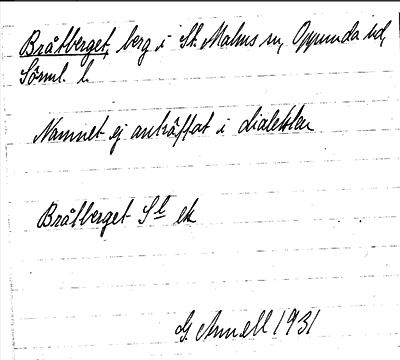 Bråtberget, berg i St. Malms sn, Oppunda hd,
Söml. l.
Namnet ej anträffat i dialekten
Bråtberget Sl ek
G. Arnell 1931